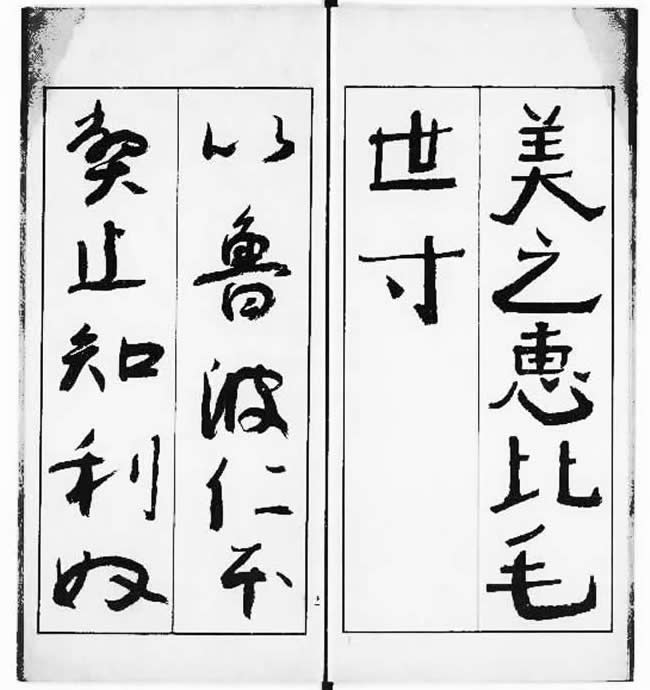 美之恵比毛
世寸
以魯波仁本
弊止知利奴